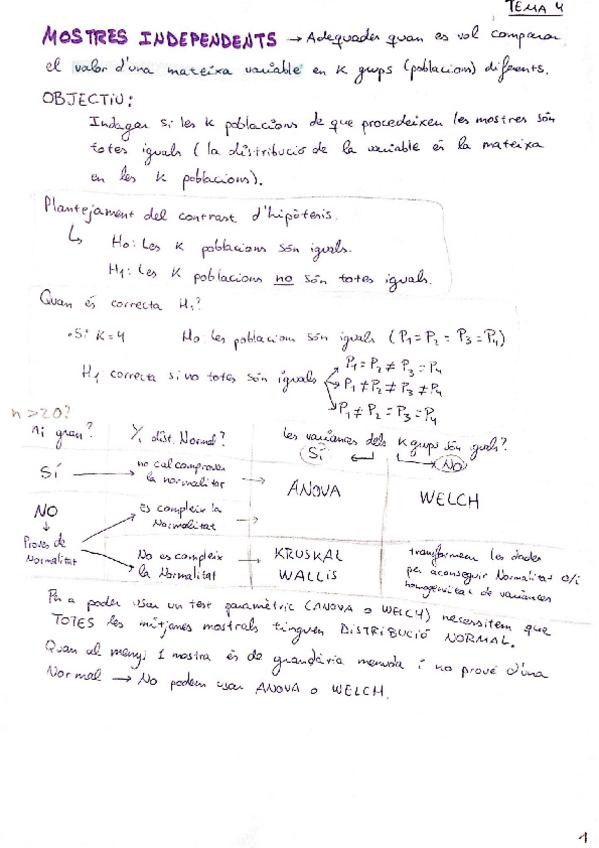 TEMA 4
MOSTRES INDEPENDENTS → Adequades quan es vol comparar
el valor d'una mateixa variable en K grups (poblacions) diferents.
OBJECTIU:
Indagar si les K poblacions de que procedeixen les mostres són
totes iguals (la distribució de la variable és la mateixa
en les K poblacions).
Plantejament del contrast d'hipòtesis.
↳ H0: Les K poblacions són iguals.
H1: Les K poblacions no són totes iguals.
Quan és correcta H1?
• Si K=4 H0: les poblacions són iguals (P1 = P2 = P3 = P4)
H1 correcta si no totes són iguals
P1 = P2 ≠ P3 = P4
P1 ≠ P2 ≠ P3 ≠ P4
P1 ≠ P2 = P3 = P4
n > 20?
ni gran? Yi dist. Normal? Les variàncies dels K grups són iguals?
Sí No
SÍ → no cal comprovar la normalitat → ANOVA WELCH
NO → Es compleix la Normalitat →
↓
Proves de Normalitat
No es compleix la Normalitat → KRUSKAL WALLIS
transformem les dades
per aconseguir Normalitat o/i
homogeneïtat de variàncies
Per a poder usar un test paramètric (ANOVA o WELCH) necessitem que
TOTES les mitjanes mostrals tinguen DISTRIBUCIÓ NORMAL.
Quan al menys 1 mostra és de grandària menuda i no prové d'una
Normal → No podem usar ANOVA o WELCH.
1